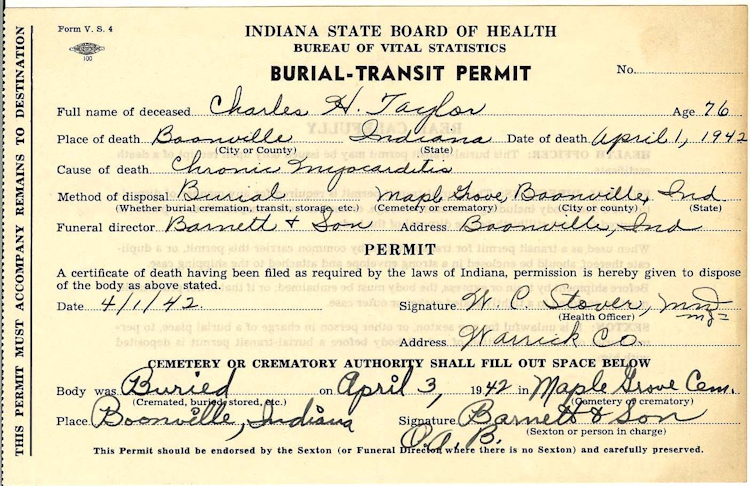 Form V. S. 4
100
INDIANA STATE BOARD OF HEALTH
BUREAU OF VITAL STATISTICS
BURIAL-TRANSIT PERMIT
No.
Full name of deceased Charles H. Taylor Age 76
Place of death Boonville Indiana Date of death April 1, 1942
(City or County) (State)
Cause of death Chronic Myocarditis
Method of disposal Burial Maple Grove, Boonville, Ind
(Whether burial cremation, transit, storage, etc.) (Cemetery or crematory) (City or county) (State)
Funeral director Barnett & Son Address Boonville, Ind
PERMIT
A certificate of death having been filed as required by the laws of Indiana, permission is hereby given to dispose
of the body as above stated.
Date 4/1/42. Signature W. C. Stover,
(Health Officer)
Address Warrick Co.
CEMETERY OR CREMATORY AUTHORITY SHALL FILL OUT SPACE BELOW
Body was Buried on April 3, 1942 in Maple Grove Cem.
(Cremated, buried, stored, etc.) (Cemetery or crematory)
Place Boonville, Indiana Signature Barnett & Son
O.A.B. (Sexton or person in charge)
This Permit should be endorsed by the Sexton (or Funeral Director where there is no Sexton) and carefully preserved.
THIS PERMIT MUST ACCOMPANY REMAINS TO DESTINATION